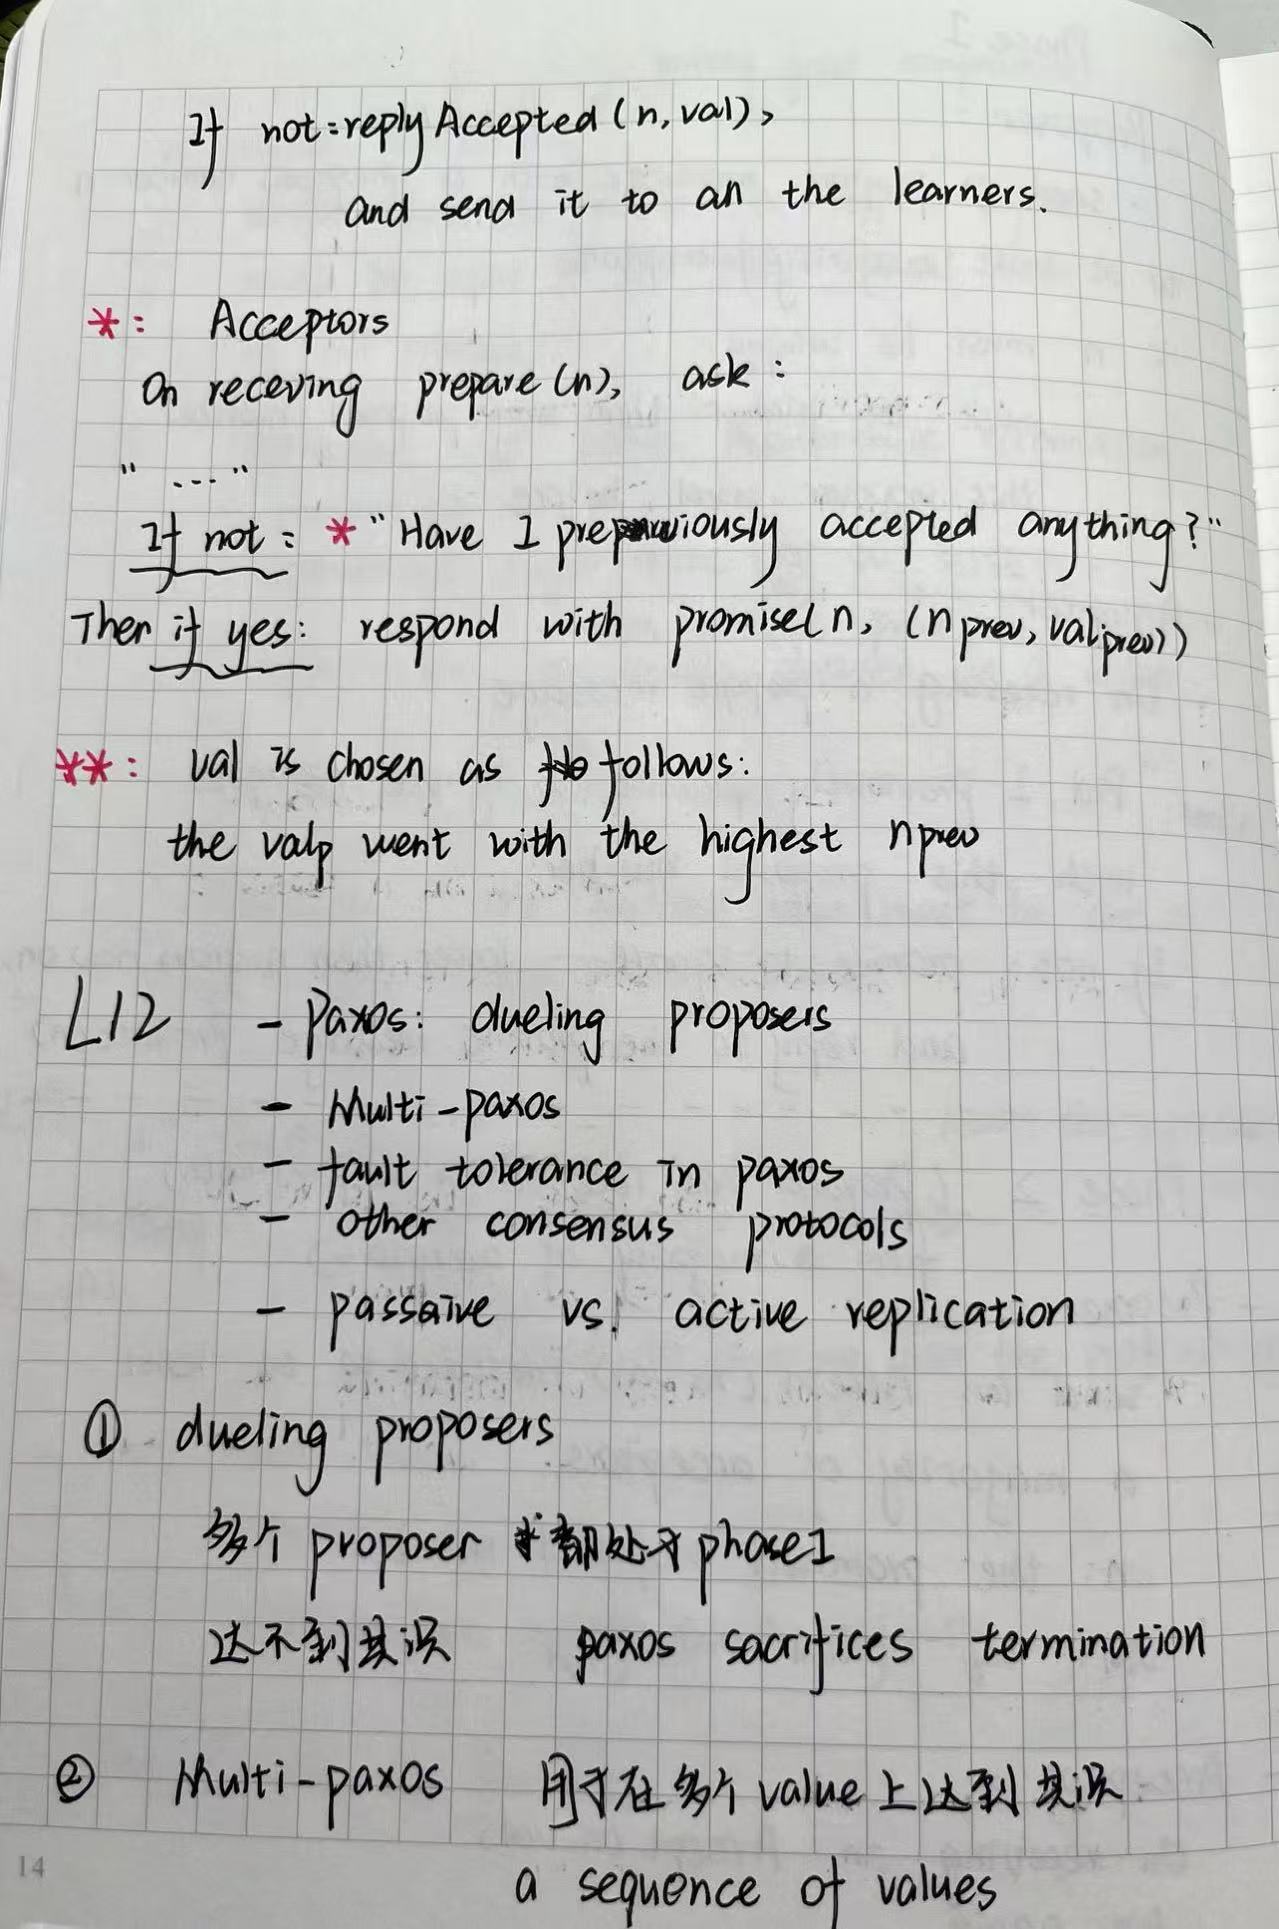 If not: reply Accepted (n, val),
and send it to all the learners.
*: Acceptors
On receving prepare (n), ask:
" .... "
If not: * "Have I previously accepted anything?"
Then if yes: respond with promise(n, (n prev, val prev))
**: val is chosen as follows:
the valp went with the highest n prev
L12 - Paxos: dueling proposers
- Multi-paxos
- fault tolerance in paxos
- other consensus protocols
- passaive vs. active replication
① dueling proposers
多个 proposer 都处于 phase1
达不到共识 paxos sacrifices termination
② Multi-paxos 用于在多个 value 上达到共识
a sequence of values
14